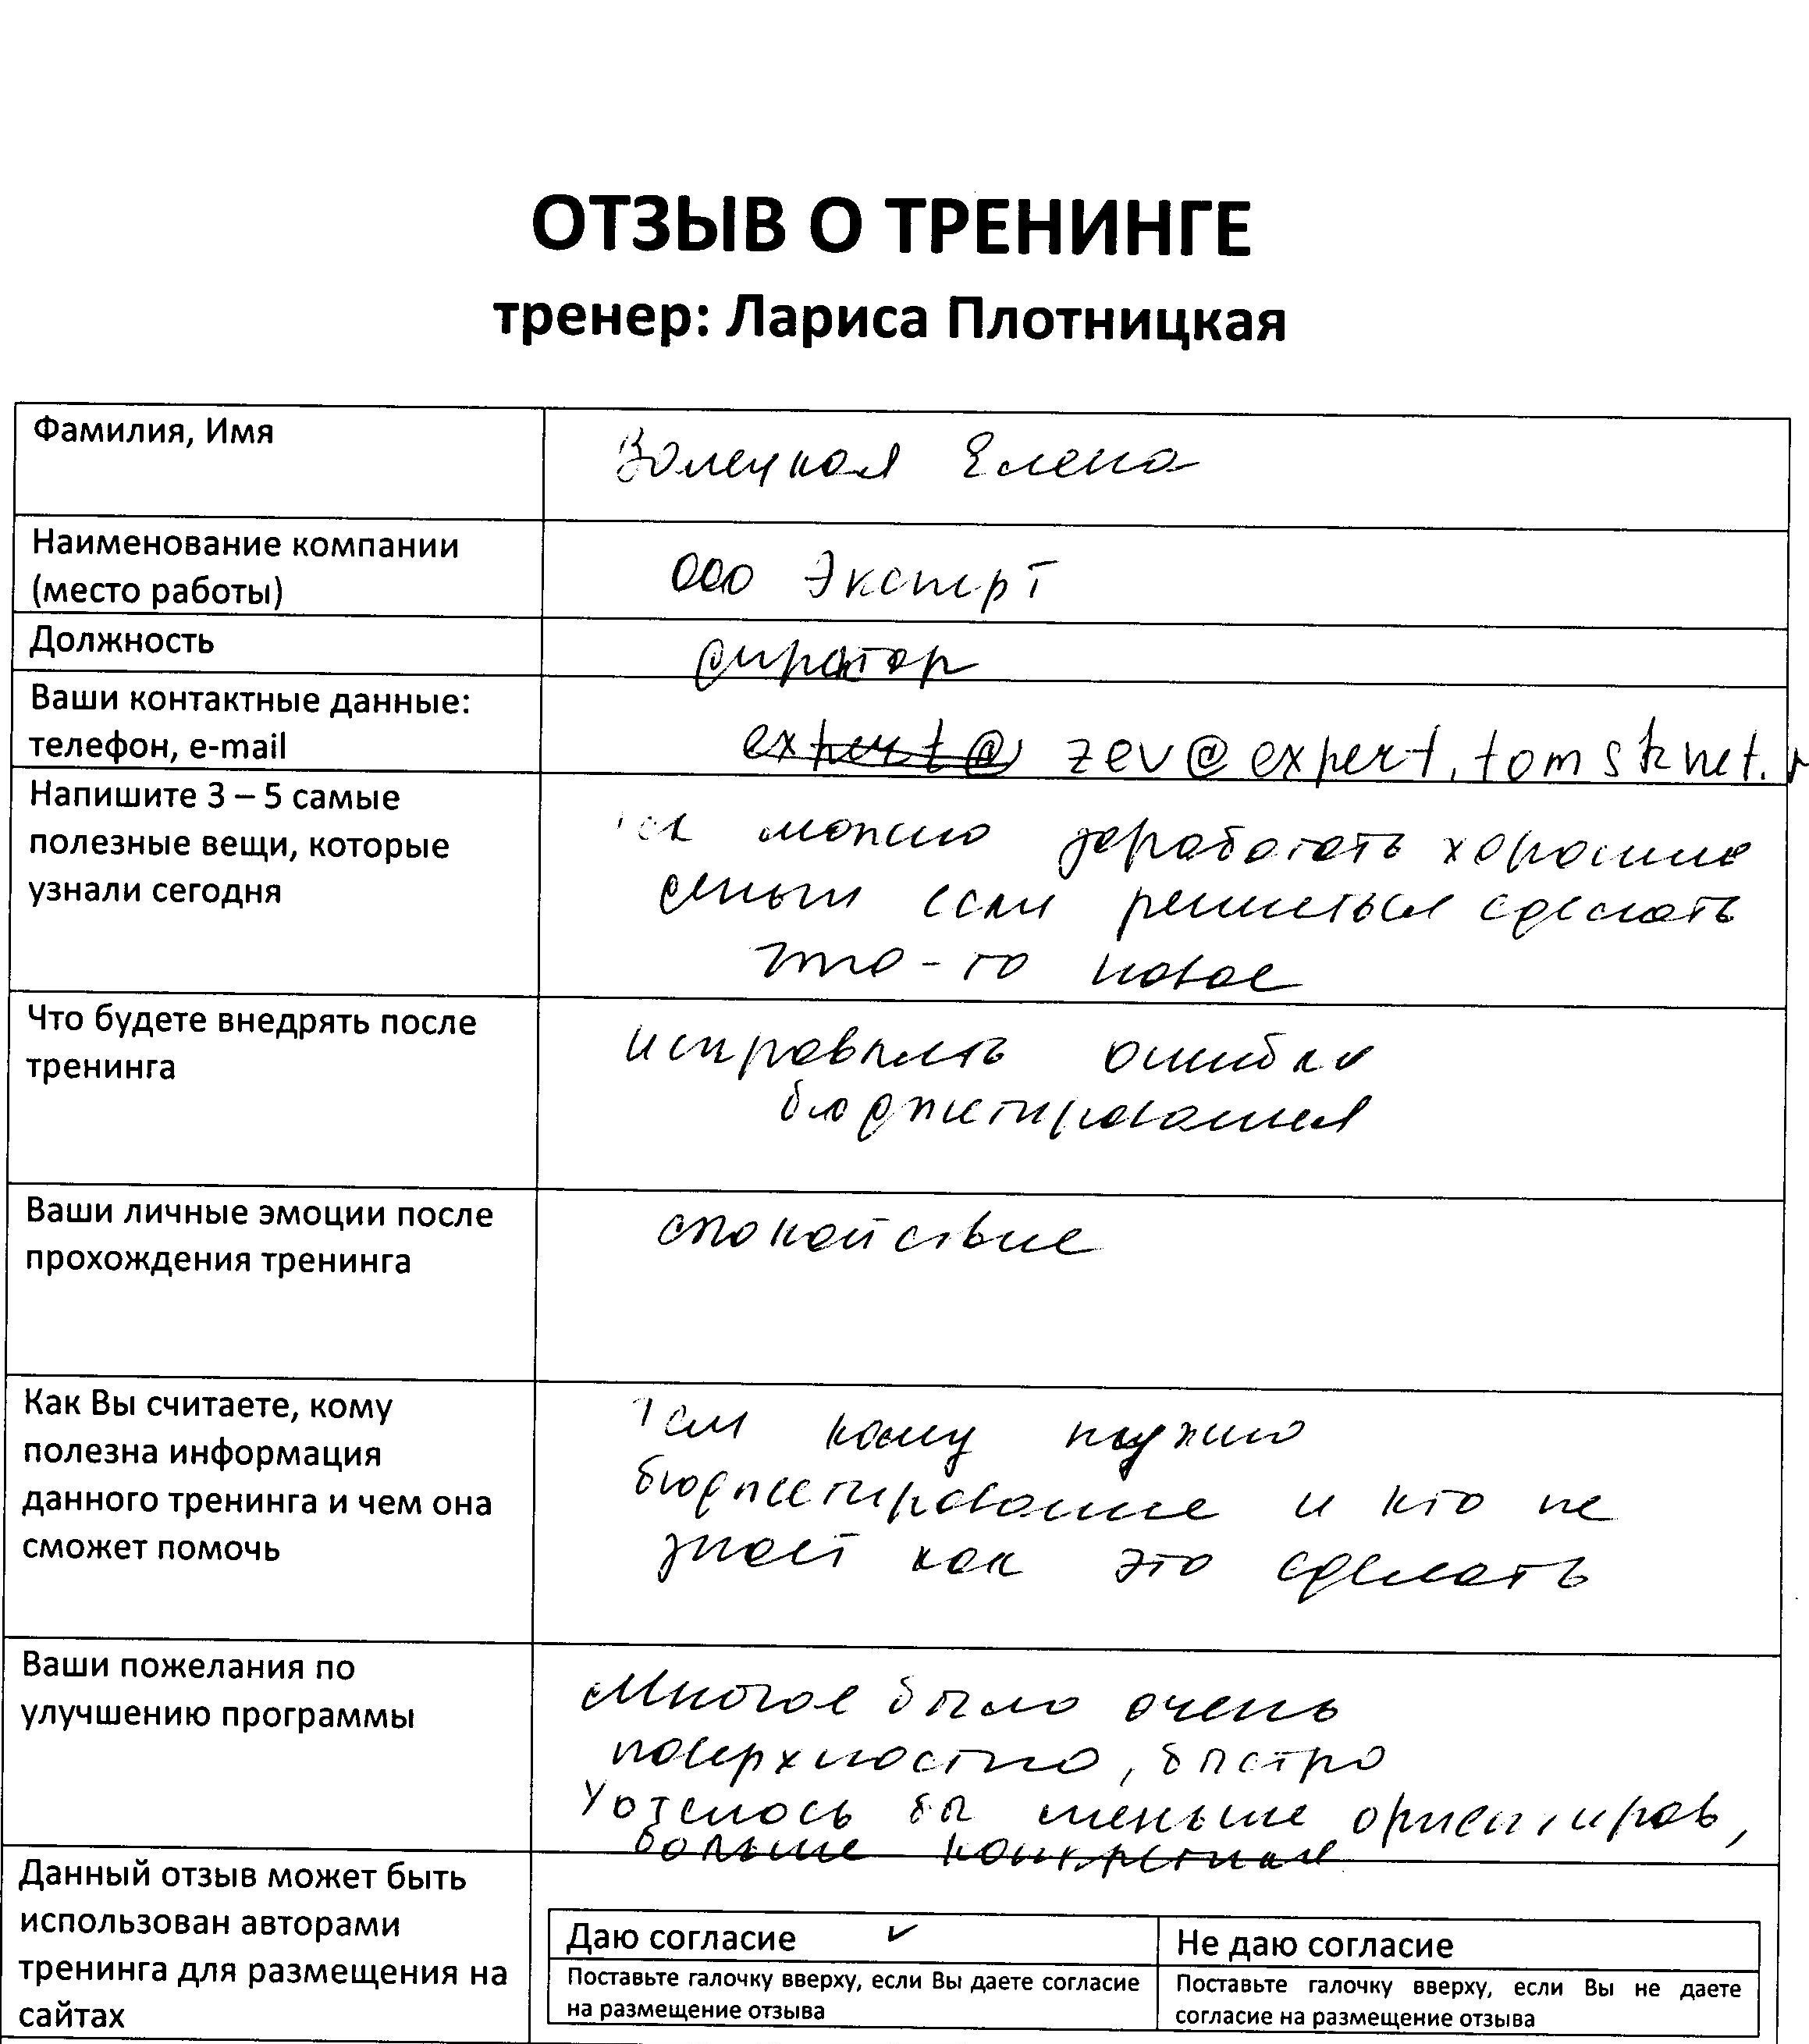 ОТЗЫВ О ТРЕНИНГЕ
тренер: Лариса Плотницкая
Фамилия, Имя
Залецкая Елена
Наименование компании
(место работы)
ООО Эксперт
Должность
директор
Ваши контактные данные:
телефон, e-mail
expert@ zev@expert.tomsknet.r
Напишите 3 – 5 самые
полезные вещи, которые
узнали сегодня
можно заработать хорошие
деньги если решиться сделать
что-то новое
Что будете внедрять после
тренинга
исправлять ошибки
бюджетирования
Ваши личные эмоции после
прохождения тренинга
спокойствие
Как Вы считаете, кому
полезна информация
данного тренинга и чем она
сможет помочь
Тем кому нужно
бюджетирование и кто не
знает как это сделать
Ваши пожелания по
улучшению программы
Многое было очень
поверхностно, быстро
Хотелось бы меньше ориентиров,
больше конкретики
Данный отзыв может быть
использован авторами
тренинга для размещения на
сайтах
Даю согласие ✓
Поставьте галочку вверху, если Вы даете согласие
на размещение отзыва
Не даю согласие
Поставьте галочку вверху, если Вы не даете
согласие на размещение отзыва